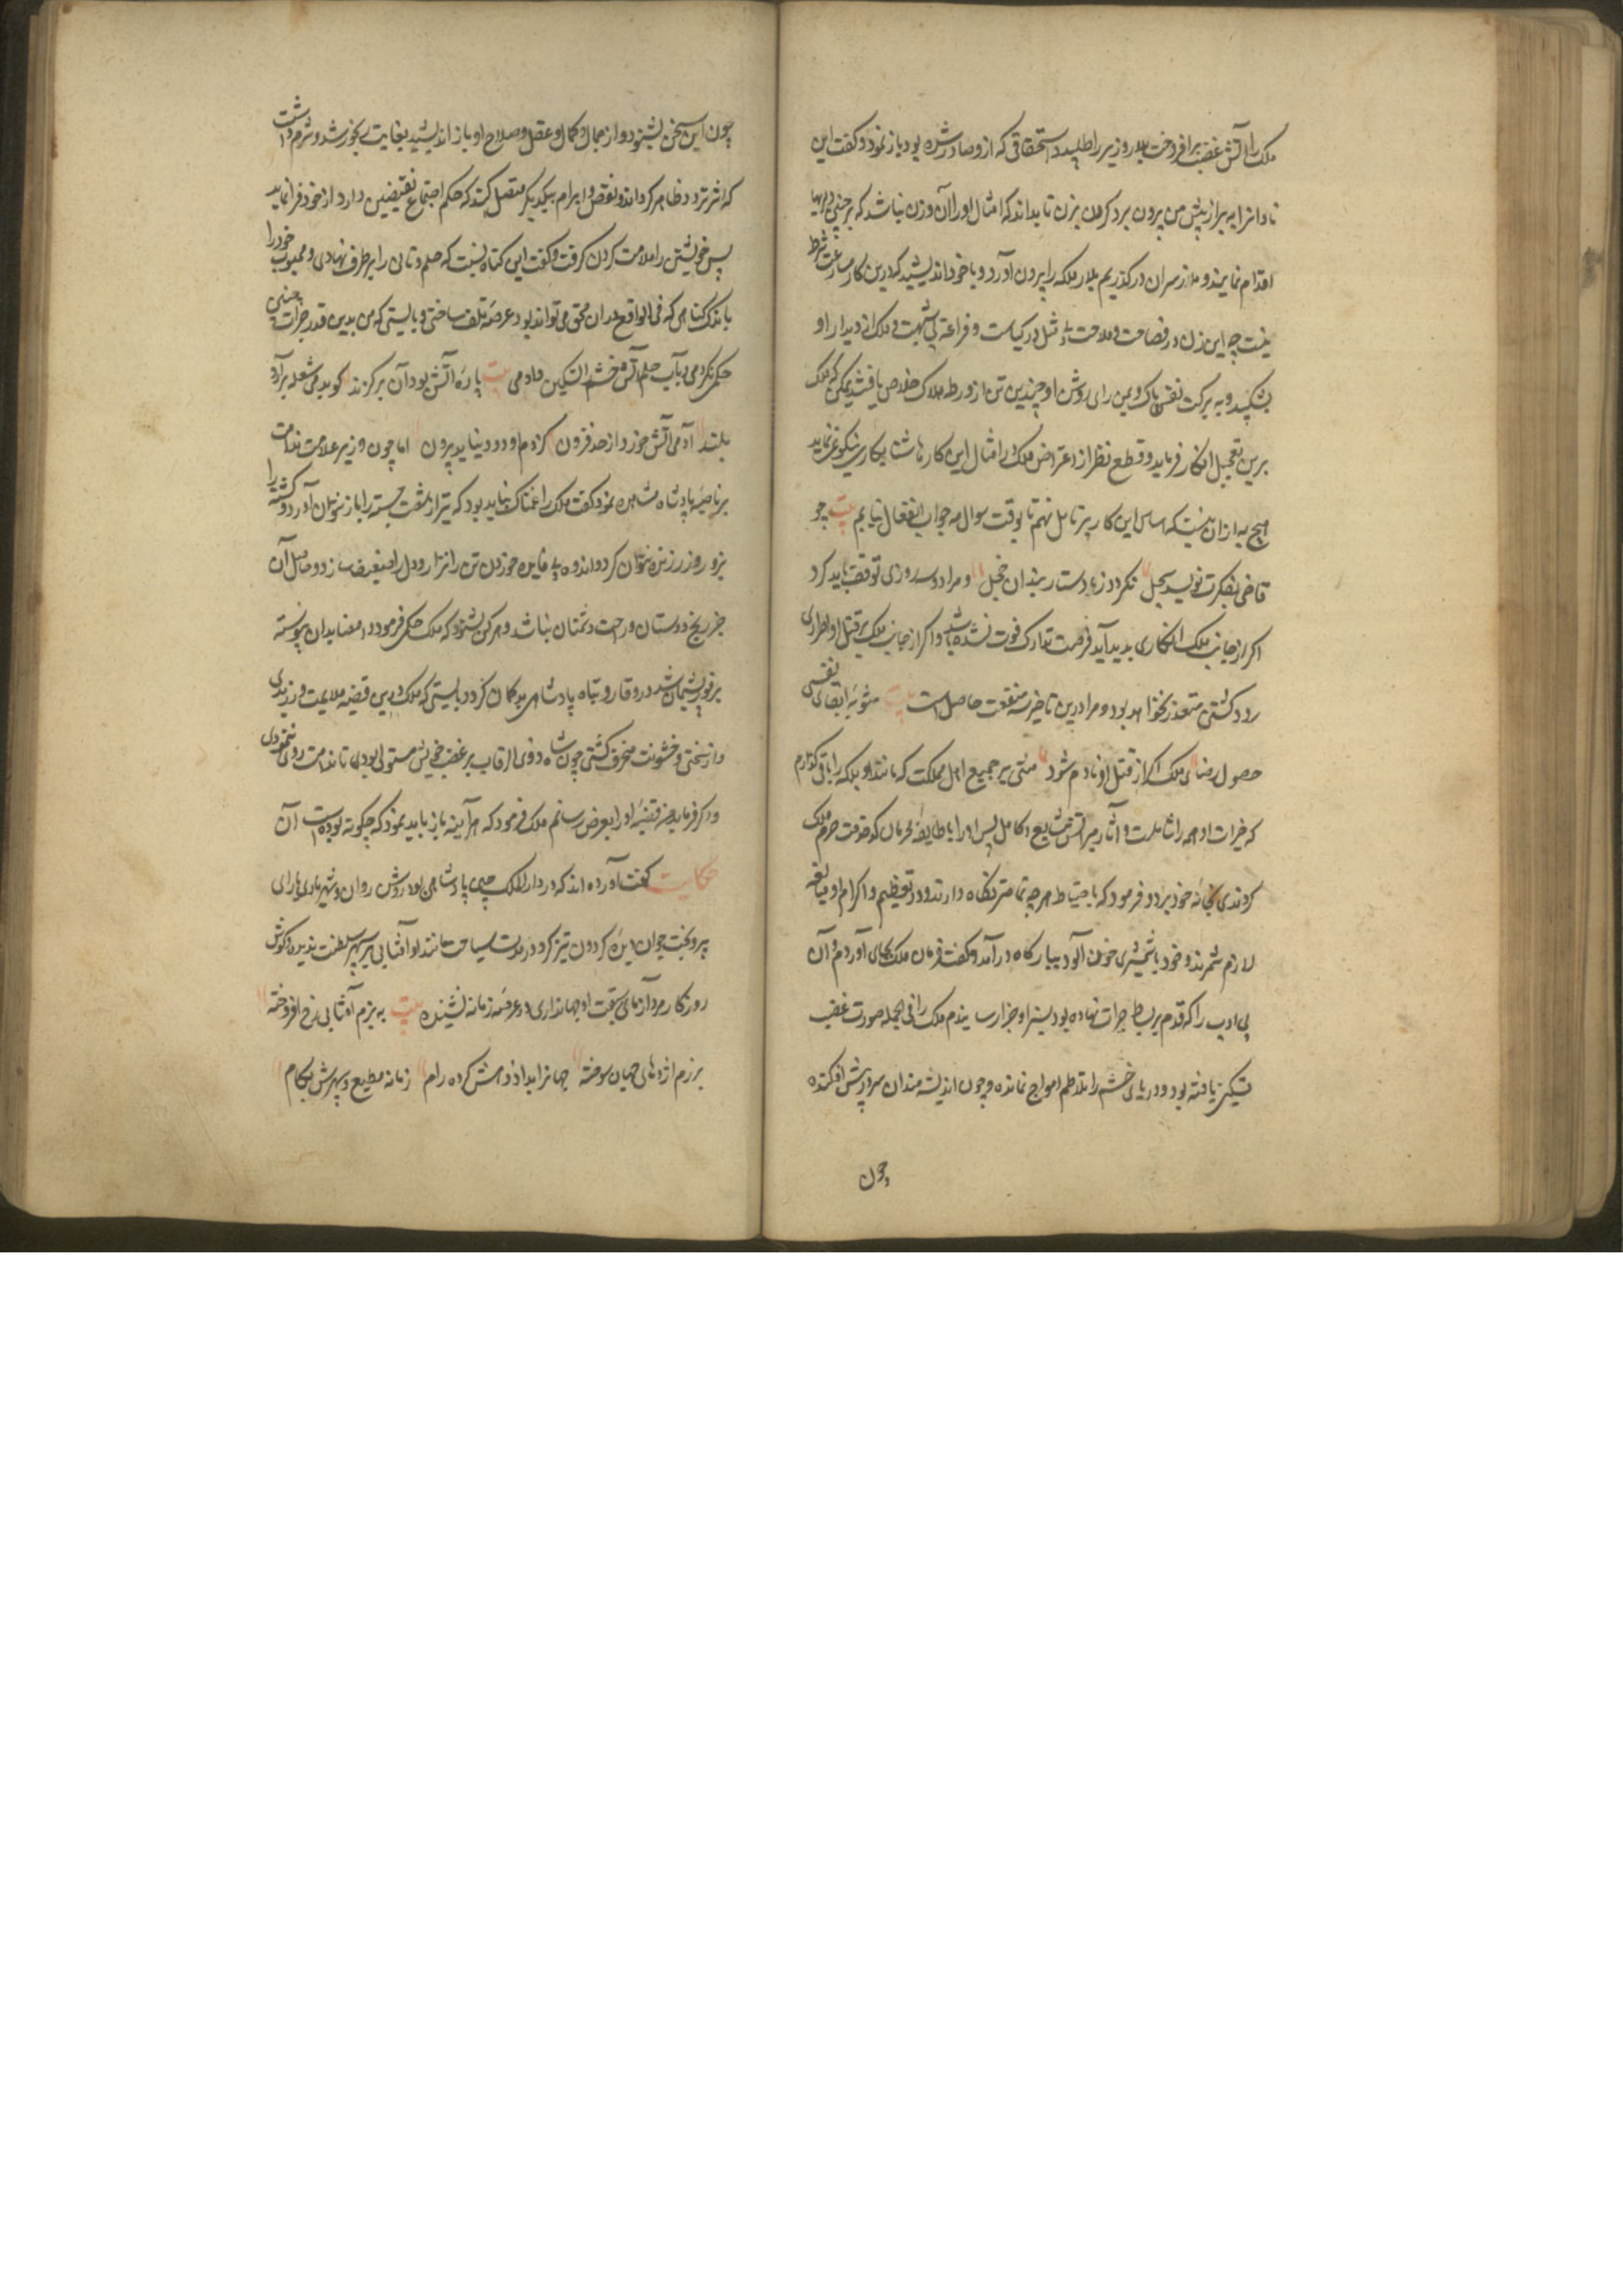 ملک را آتش غضب برافروخت بلار وزیر را طلبید و استحقاقی که ازو صادر شده بود باز نمود و گفت این
نادان را به بر از پیش من بیرون برد گردن بزن تا بداند که امثال او را آن وزن نباشد که بر چنین دلیریها
اقدام نمایند و ما از سر آن درگذریم بلار ملکه را بیرون آورد و با خود اندیشید که درین کار مسارعت شرط
نیست چه این زن در فصاحت و ملاحت بی مثل و در کیاست و فراغت بی شبهت و ملک از دیدار او
نشکیبد و به برکت نفس پاک و یمن رای روشن او چندین تن از ورطه هلاک خلاص یافتند ممکن که ملک
برین تعجیل انکار فرماید و قطع نظر از اعتراض ملک را امثال این کارها شتابکاری نیکو نمی نماید
هیچ به از آن نیست که اساس این کار بر تامل نهم تا بوقت سوال به جواب انفعال نیابم بیت چو
قاضی بفکرت نویسد سجل نگردد ز دستار بندان خجل و مرا دو سه روزی توقف باید کرد
اگر از جانب ملک انکاری پدید آید فرصت تدارک فوت نشده باشد و اگر از جانب ملک بر قتل او اصراری
رود کشتن متعذر نخواهد بود و مرا درین تاخیر سه منفعت حاصل است مثوبه ابقای نفسی
حصول رضای ملک اگر از قتل او نادم شود منتی بر جمیع اهل مملکت که مانند او ملکه را باقی گذارم
که خیرات او همه را شاملست و آثار میراتش شایع و کامل پس او را با طایفه محرمان که خدمت حرم ملک
کردندی بخانه خود برد و فرمود که باحتیاط هر چه تمامتر نگاه دارند و در تعظیم و اکرام او مبالغه
لازم شمرند و خود با شمشیری خون آلود ببارگاه در آمد و گفت فرمان ملک بجای آوردم و آن
بی ادب را که قدم بر بساط جرات نهاده بود بسزا و جزا رسانیدم ملک را فی الجمله صورت غضب
تسکین یافته بود و دریای خشم را تلاطم امواج نمانده و چون اندیشه مندان سر در پیش افکنده
چون
چون این سخن بشنود و از جمال و کمال و عقل و صلاح او باز اندیشید بغایت رنجور شد و شرم داشت
که اثر تردد ظاهر گرداند و نقض و ابرام بیکدیگر متصل کند که حکم اجتماع نقیضین دارد از خود فرا نماید
پس خویشتن را ملامت کردن گرفت و گفت این گناه نیست که حلم و تانی را بر طرف نهادی و محبوب خود را
باندک گناهی که فی الواقع در آن محق می تواند بود عرضه تلف ساختی و بایستی که من بدین قدر جرات چنین
حکم نکردمی و بآب حلم آتش خشم را تسکین دادمی بیت پاره آتش بود آن بر گزند کو بدمی شعله برآرد
بلند آدمی آتش خورد از حد فزون کز دم او دود نیاید برون اما چون وزیر علامت ندامت
بر ناصیه پادشاه مشاهده نمود گفت ملک را غمناک نباید بود که تیر از شست جسته را باز نتوان آورد و کشته را
بزور و زر زنده نتوان کرد و اندوه بی فایده خوردن تن را نزار و دل را ضعیف سازد و حاصل آن
جز رنج دوستان و راحت دشمنان نباشد و هر کس بشنود که ملک حکمی فرمود و امضا بدان پیوسته
بر فور پشیمان شد در وقار و ثبات پادشاهی بدگمان گردد بایستی که ملک درین قضیه ملایمت ورزیدی
و از سختی و خشونت منحرف گشتی چون شاه ذوی الرقاب بر غضب خویش مستولی بودی تا ندامت روی ننمودی
و اگر فرماید من قضیه او را بعرض رسانم ملک فرمود که هر آینه باز باید نمود که چگونه بوده است آن
حکایت گفت آورده اند که در دار الملک چین پادشاهی بود روشن روان و شهریاری با رای
پیر و بخت جوان دیده گردون تیز گرد در مدت سیاحت مانند او آفتابی بر سپهر سلطنت ندیده و گوش
روزگار مرد آزمای بنعت او جهانداری در عرصه زمانه نشنیده بیت به بزم آفتابی رخ افروخته
برزم اژدهای جهان سوخته جهان را بداد و دهش کرده رام زمانه مطیع و سپهرش بکام